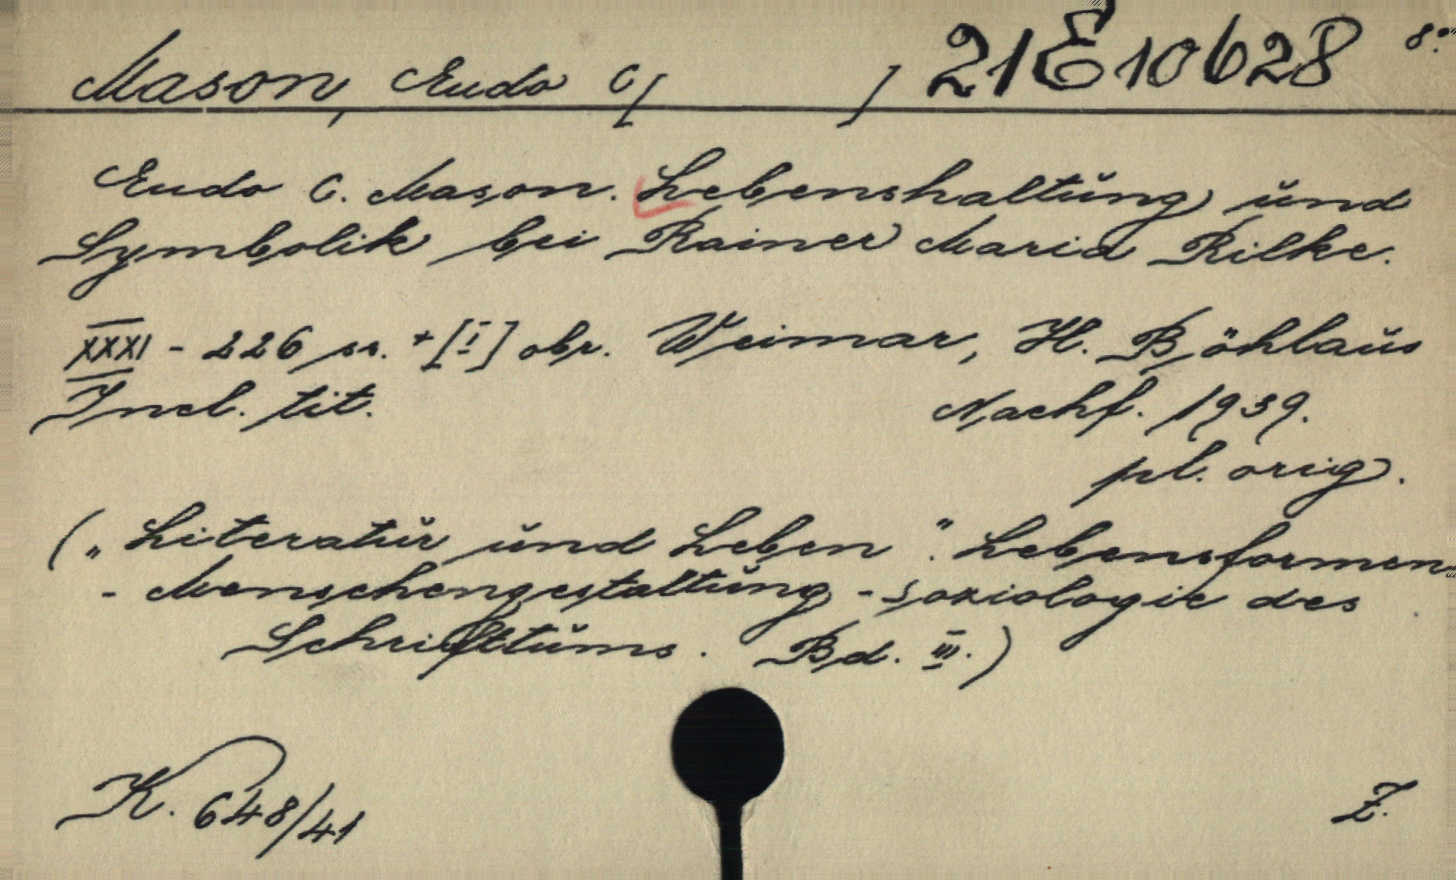 Mason, Eudo C[ ] 21E10628 8°.
Eudo C. Mason. Lebenshaltung und
Symbolik bei Rainer Maria Rilke.
XXXI - 226 ss. + [I] obr. Weimar, H. Böhlaus
Incl. tit. Nachf. 1939.
pl. orig.
(„Literatur und Leben". Lebensformen
- Menschengestaltung - Soziologie des
Schrifttums. Bd. III.)
K. 648/41 Z.